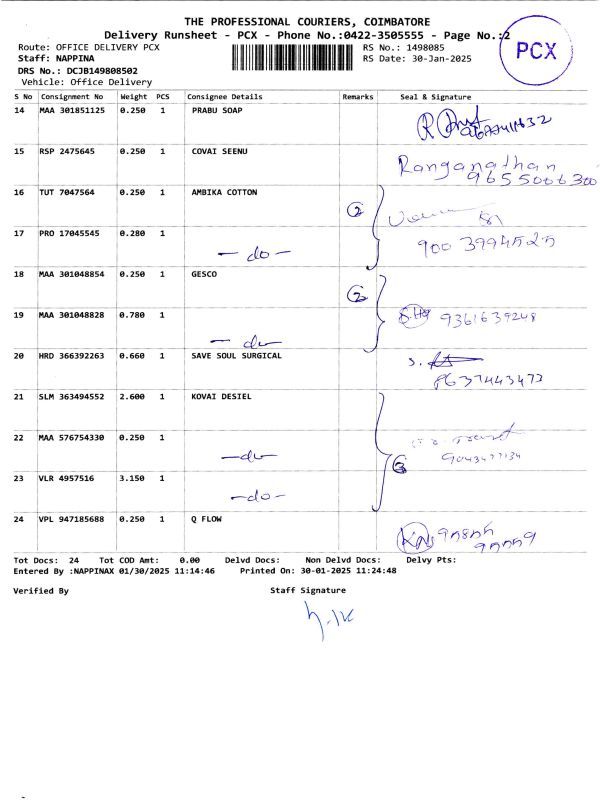 THE PROFESSIONAL COURIERS, COIMBATORE
Delivery Runsheet - PCX - Phone No.:0422-3505555 - Page No.:2
PCX
Route: OFFICE DELIVERY PCX
RS No.: 1498085
Staff: NAPPINA
RS Date: 30-Jan-2025
DRS No.: DCJB149808502
Vehicle: Office Delivery
S No Consignment No Weight PCS Consignee Details Remarks Seal & Signature
14 MAA 301851125 0.250 1 PRABU SOAP
15 RSP 2475645 0.250 1 COVAI SEENU Ranganathan
9655006300
16 TUT 7047564 0.250 1 AMBIKA COTTON 2
17 PRO 17045545 0.280 1 - do - 900 3994525
18 MAA 301048854 0.250 1 GESCO 2
19 MAA 301048828 0.780 1 - do - 9361639248
20 HRD 366392263 0.660 1 SAVE SOUL SURGICAL
8637443473
21 SLM 363494552 2.600 1 KOVAI DESIEL
22 MAA 576754330 0.250 1 - do -
23 VLR 4957516 3.150 1 - do - 3
24 VPL 947185688 0.250 1 Q FLOW
Tot Docs: 24 Tot COD Amt: 0.00 Delvd Docs: Non Delvd Docs: Delvy Pts:
Entered By :NAPPINAX 01/30/2025 11:14:46 Printed On: 30-01-2025 11:24:48
Verified By Staff Signature